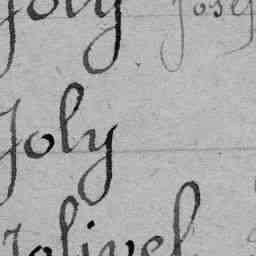 Joly Josep
Joly
Jolivel